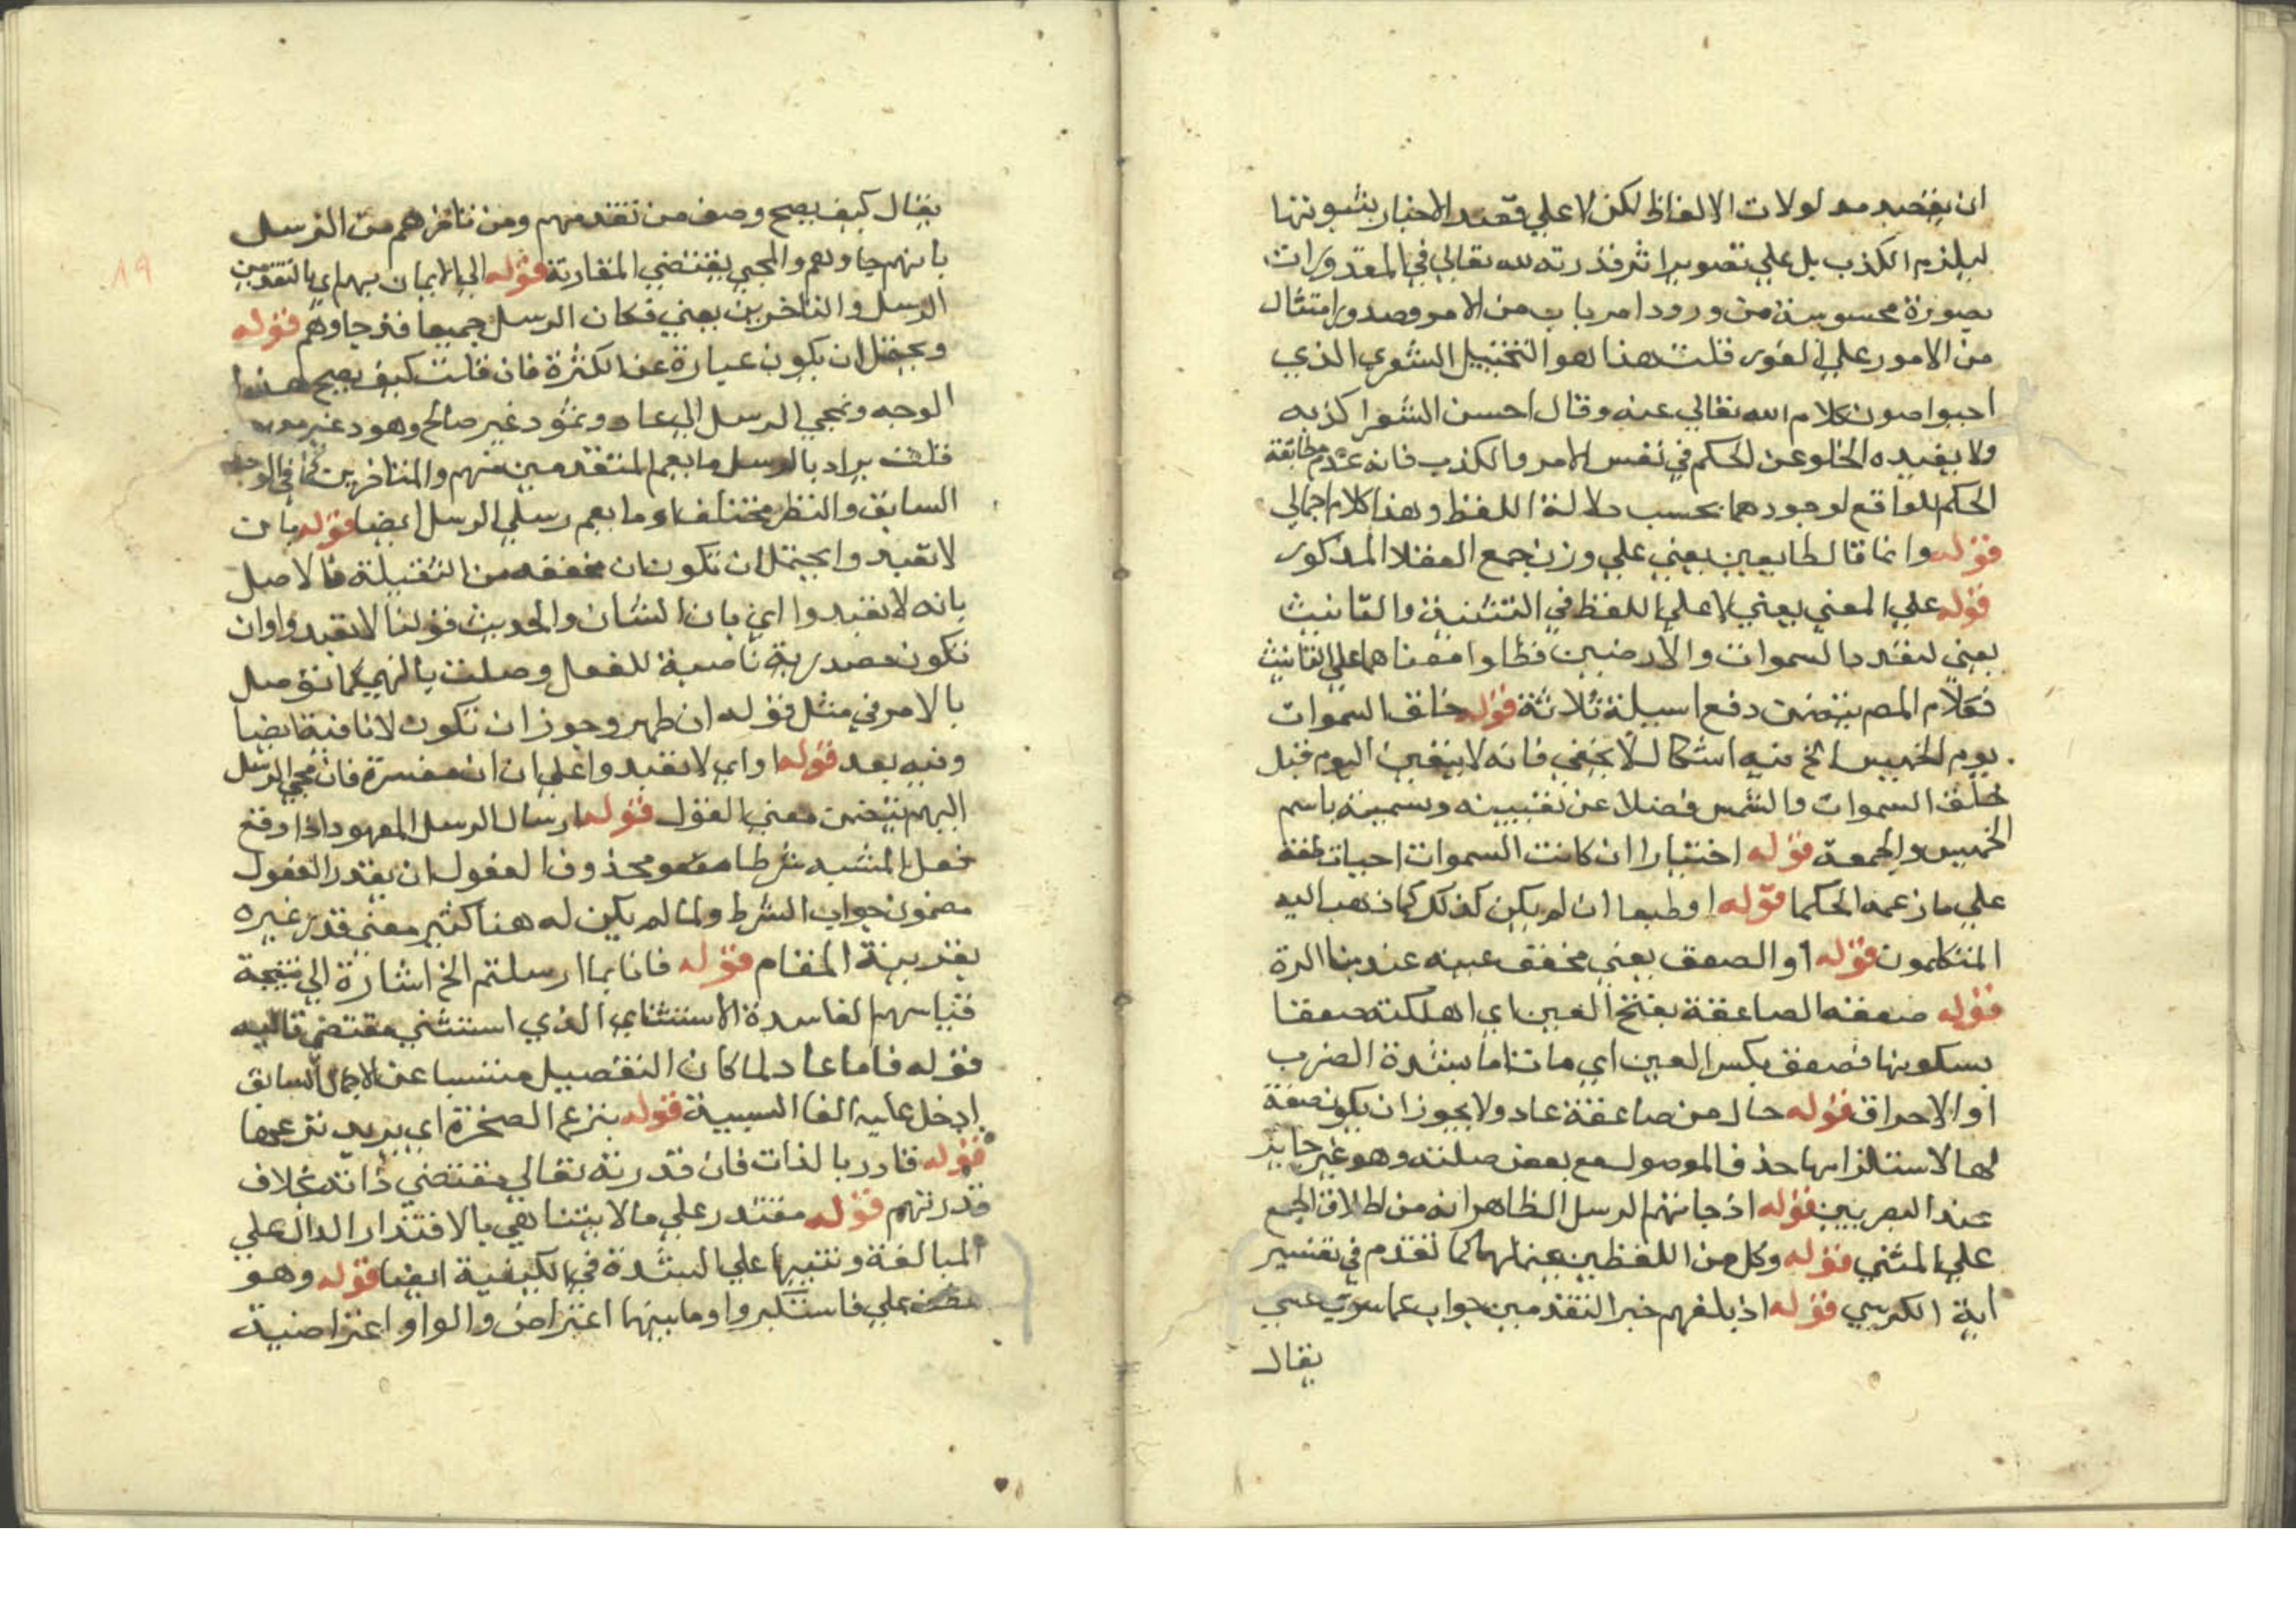 ان يقصد مدلولات الالفاظ لكن لا علي قصد الاخبار بثبوتها
ليلزم الكذب بل علي تصوير اثر قدرته لله تعالي في المقدورات
بصورة محسوسة من ورود امر باب من الامر وصدور امتثال
من الامور علي الفور قلت هذا هو التخييل الشعري الذي
اجبوا صون كلام الله تعالي عنه وقال احسن الشعرا كذبه
ولا يفيده الخلو عن الحكم في نفس الامر والكذب فانه عدم مطابقة
الحكم للواقع لوجودهما بحسب دلالة اللفظ وهذا كلام اجمالي
قوله وانما قال طايعين يعني علي وزن جمع العقلا المذكور
قوله علي المعني يعني لا علي اللفظ في التثنية والتانيث
يعني لتعدد السموات والارضين فظاو امعناهما علي التانيث
فكلام المص يتضمن دفع اسيلة ثلاثة قوله خلق السموات
يوم الخميس الخ فيه اشكال لا يخفي فانه لا يتعين اليوم قبل
خلق السموات والشمس فضلا عن تعيينه وتسميته باسم
الخميس والجمعة قوله اختيارا ان كانت السموات احيا ناطقة
علي ما زعمه الحكما قوله او طبعا ان لم يكن كذلك كما ذهب اليه
المتكلمون قوله او الصعق يعني مخفف عينه عند بنا المرة
قوله صعقته الصاعقة بفتح العين اي اهلكته صعقا
بسكونها فصعق بكسر العين اي مات اما بشدة الضرب
او الاحراق قوله حال من صاعقة عاد ولا يجوز ان يكون صفة
لها لاستلزامها حذف الموصول مع بعض صلته وهو غير جايز
عند البصريين قوله اذ جاتهم الرسل الظاهر انه من اطلاق الجمع
علي المثني قوله وكل من اللفظين يحتملهما كما تقدم في تفسير
اية الكرسي قوله اذ بلغهم خبر المتقدمين جواب عما سوي عسي
يقال
يقال كيف يصح وصف من تقدمهم ومن تاخر هم من الرسل
بانهم جاوهم والمجي يقتضي المقاربة قوله الي الايمان بهم اي بالمتقدمين من
الرسل والتاخرين يعني فكان الرسل جميعا قد جاوهم قوله
ويحتمل ان يكون عبارة عن الكثرة فان قلت كيف يصح هذا
الوجه ومجي الرسل الي عاد وثمود غير صالح وهود غير معهود
قلت يراد بالرسل ما يعم المتقدمين منهم والمتاخرين كما في الوجه
السابق والنظر مختلف او ما يعم رسلي الرسل ايضا قوله بان
لا تعبدوا يحتمل ان تكون ان مخففه من الثقيلة فالاصل
بانه لا تعبدوا اي بان الشان والحديث قولنا لا تعبدوا وان
تكون مصدرية ناصبة للفعل وصلت بالنهي كما توصل
بالامر في مثل قوله ان طهر وجوز ان تكون لا نافية ايضا
وفيه بعد قوله او اي لا تعبدوا علي ان ان مفسرة فان مجي الرسل
اليهم يتضمن معني القول قوله ارسال الرسل المعهود اذا وقع
فعل المشيه شرطا فهو محذوف المفعول ان يقدر المفعول
مضمون جواب الشرط ولما لم يكن له هنا كثير معني قدر غيره
بقرينة المقام قوله فانا بما ارسلتم الخ اشارة الي نتيجة
قياسهم الفاسدة الاستثناي الذي استثني مقتضي تاليه
قوله فاما عاد لما كان التفصيل منتسبا عن الاجمال السابق
ادخل عليه الفا السببية قوله ينزع الصخرة اي يريد نزعها
قوله قادر بالذات فان قدرته تعالي مقتضي ذاته بخلاف
قدرتهم قوله مقتدر علي ما لا يتناهي بالاقتدار الدال علي
المبالغة وتنبيها علي الشدة في الكيفية ايضا قوله وهو
عطف علي فاستكبروا وما بينهما اعتراض والواو اعتراضية